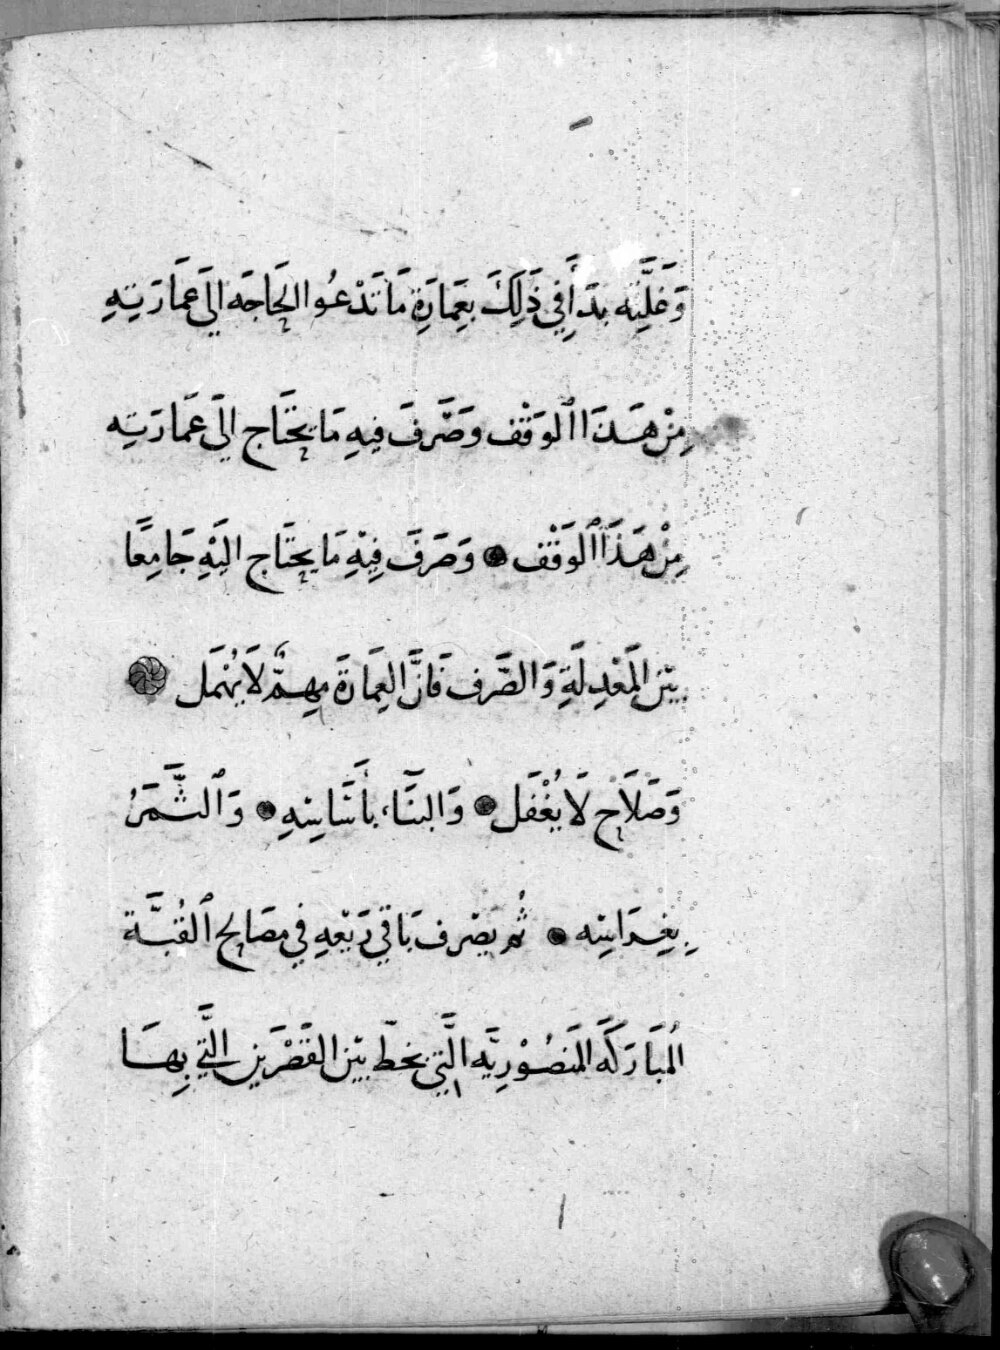 وَغَلَّتِه بَدَأَ في ذَلِكَ بعِمَارَةِ مَا تَدْعُوا الحَاجَه الَى عمَارَتِهِ
مِنْ هَذَا الوَقْف وَصَرَفَ فِيهِ مَا يحتَاج الَى عمَارَتِه
مِنْ هَذَا الوَقْف وَصَرَفَ فِيْهِ مَا يحتَاج اليْهِ جَامِعًا
بيْنَ المَعْدِلَةِ وَالصَّرف فَانَّ العِمَارَةَ مهِمٌّ لَا يُهْمَل
وَصَلَاح لَا يُغْفَل وَالبنَاء بأسَاسِهِ وَالثَّمَرُ
بِغِرَاسِه ثُمَّ يَصْرف بَاقي رَيْعهِ في مصَالح القُبَّة
المُبَارَكَه المَنصُوْرِيَّه الَّتي بخطّ بيْن القَصْرَيْن الَّتي بِهَا